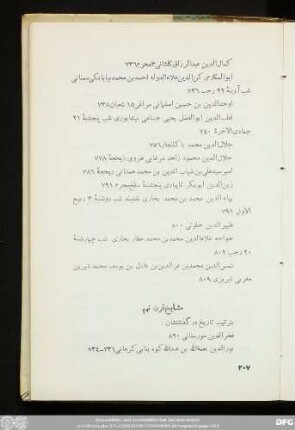 کمال‌الدین عبدالرزاق کاشانی ۳ محرم ۷۳۶
ابوالمکارم رکن‌الدین علاءالدوله احمد بن محمد بیابانکی سمنانی
شب آدینهٔ ۲۲ رجب ۷۳۶
اوحدالدین بن حسین اصفهانی مراغی ۱۵ شعبان ۷۳۸
قطب‌الدین ابوالفضل یحیی جامی نیشابوری شب پنجشنبهٔ ۲۱
جمادی‌الاخرة ۷۴۰
جلال‌الدین محمد
جلال‌الدین محمود زاهد مرغابی هروی ذیحجهٔ ۷۷۸
امیر سیدعلی بن شهاب الدین بن محمد همدانی ذیحجهٔ ۷۸۶
زین‌الدین ابوبکر تایبادی پنجشنبهٔ سلخ محرم ۷۹۱
بهاء الدین محمد بن محمد بخاری نقشبند شب دوشنبهٔ ۳ ربیع
الاول ۷۹۱
ظهیرالدین خلوتی ۸۰۰
خواجه علاءالدین محمد بن محمد عطار بخاری شب چهارشنبهٔ
۲۰ رجب ۸۰۲
شمس‌الدین محمد بن عزالدین بن عادل بن یوسف محمد شیرین
مغربی تبریزی ۸۰۹
مشایخ قرن نهم
بترتیب تاریخ درگذشتشان:
فخرالدین نورستانی ۸۲۰
نورالدین نعمةالله بن عبدالله کوه بنانی کرمانی ۷۳۱-۸۳۴
۲۰۷